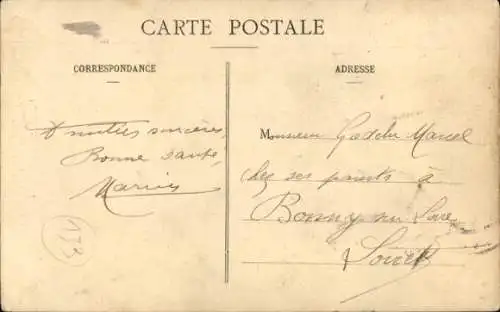 CARTE POSTALE
CORRESPONDANCE
ADRESSE
Amitiés sincères,
Bonne santé
Marius
Monsieur Marcel
chez ses parents à
Bonny sur Loire
Loiret
153